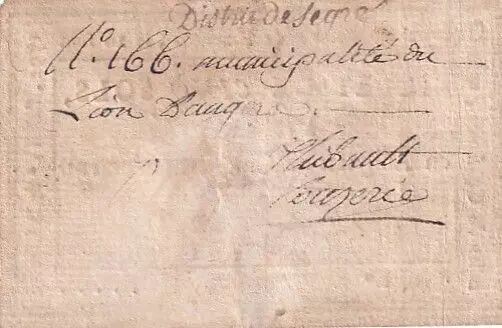 District de Segré
N.° 166. municipalité du
Lion Dangers.
Thibault